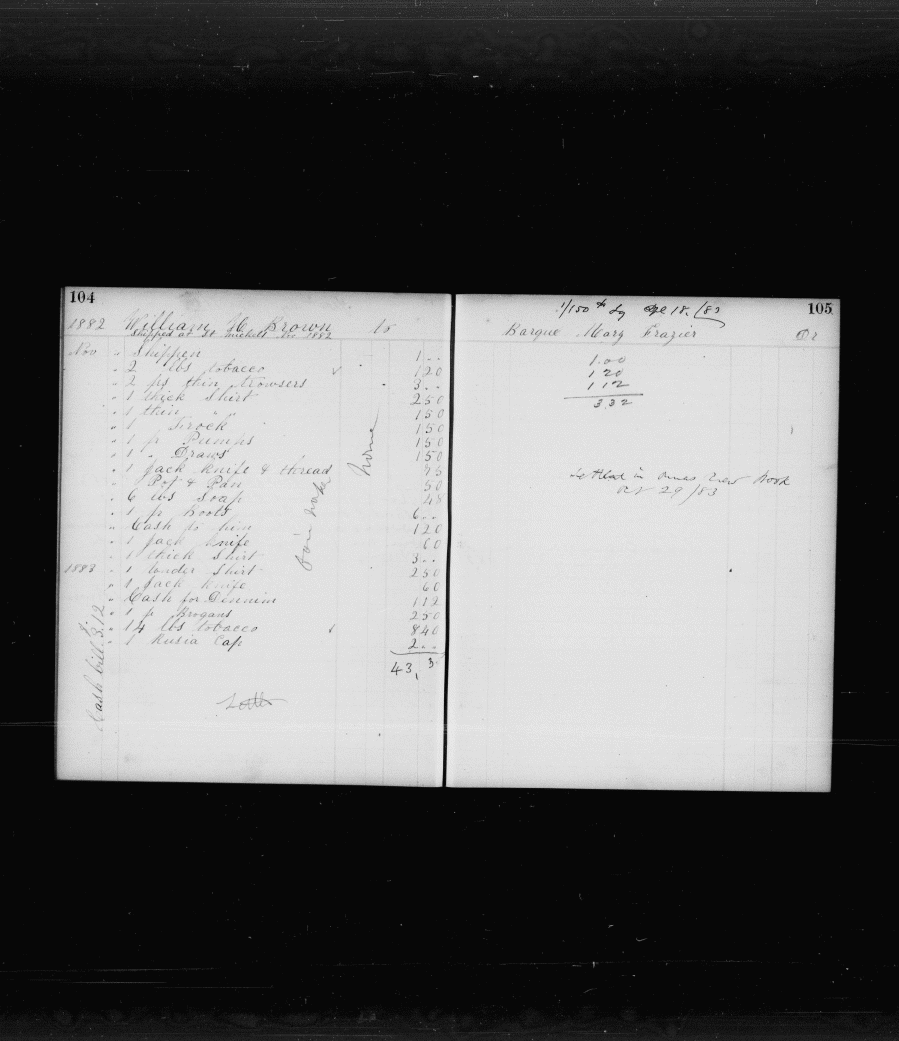 104
1882 William H Brown to
Shipped at St Michels Nov 1882
Nov " Shippen 1 . .
" 2 lbs tobacco 1 20
" 2 ps thin trowsers 3 . .
" 1 thick Shirt 2 50
" 1 thin " " 1 50
" 1 Frock 1 50
" 1 pr Pumps 1 50
" 1 " Draws 1 50
" 1 Jack Knife & thread 75
" Pot & Pan 50
" 6 lbs Soap 48
" 1 p Boots 6 . .
" Cash to him 1 20
" 1 Jack Knife 60
" 1 thick Shirt 3 . .
1883 " 1 under Shirt 2 50
" 1 Jack Knife 60
" Cash for Dinnim 1 12
" 1 p Brogans 2 50
" 14 lbs tobacco 8 40
" 1 Rusia Cap 2 . .
43, 3
Cash bill 3.12
home
105
1/150th Lay Apl 18. /83
Barque Mary Frazier Dr
1.00
1 20
1 12
3.32
Settled in Book
Oct 29/83